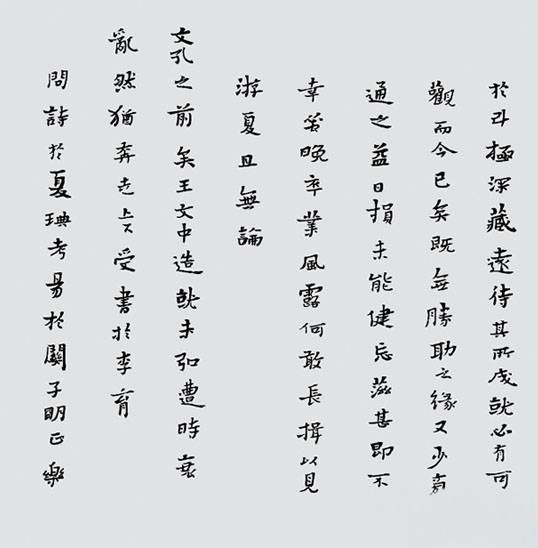 於極深藏遠待其所成就必有可
觀而今已矣既無勝助之緣又少旁
通之益日損未能健忘滋甚即不
幸晚卒業風露何敢長揖以見
游夏且無論
文孔之前矣王文中造就未弘遭時衰
亂然猶奔走受書於李育
問詩於夏琠考易於關子明正樂